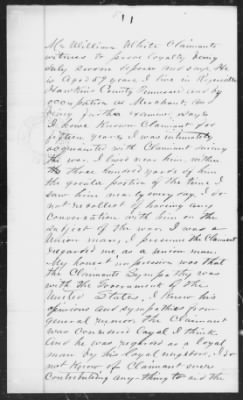 11
Mr William White Claimants
witness to prove loyalty being
duly sworn depose and says He
is Aged 59 years I live in
Hawkins County Tennessee and by
occupation a Merchant. And
being further examined says
I have Known Claimant for
fifteen years I was intimately
acquainted with Claimant during
the war. I lived near him, within
three hundred yards of him
the greater portion of the time I
saw him nearly every day. I do
not recollect of having any
Conversation with him on the
subject of the war. I was a
Union man, I presume the Claimant
regarded me as a union man.
My honest impression was that
the Claimants Sympathy was
with the Government of the
United States, I Knew his
opinions and sympathies from
general rumor the Claimant
was considered loyal I think.
And he was regarded as a loyal
man by his loyal neighbors, I do
not Know of Claimant ever
Contributing any-thing to aid the